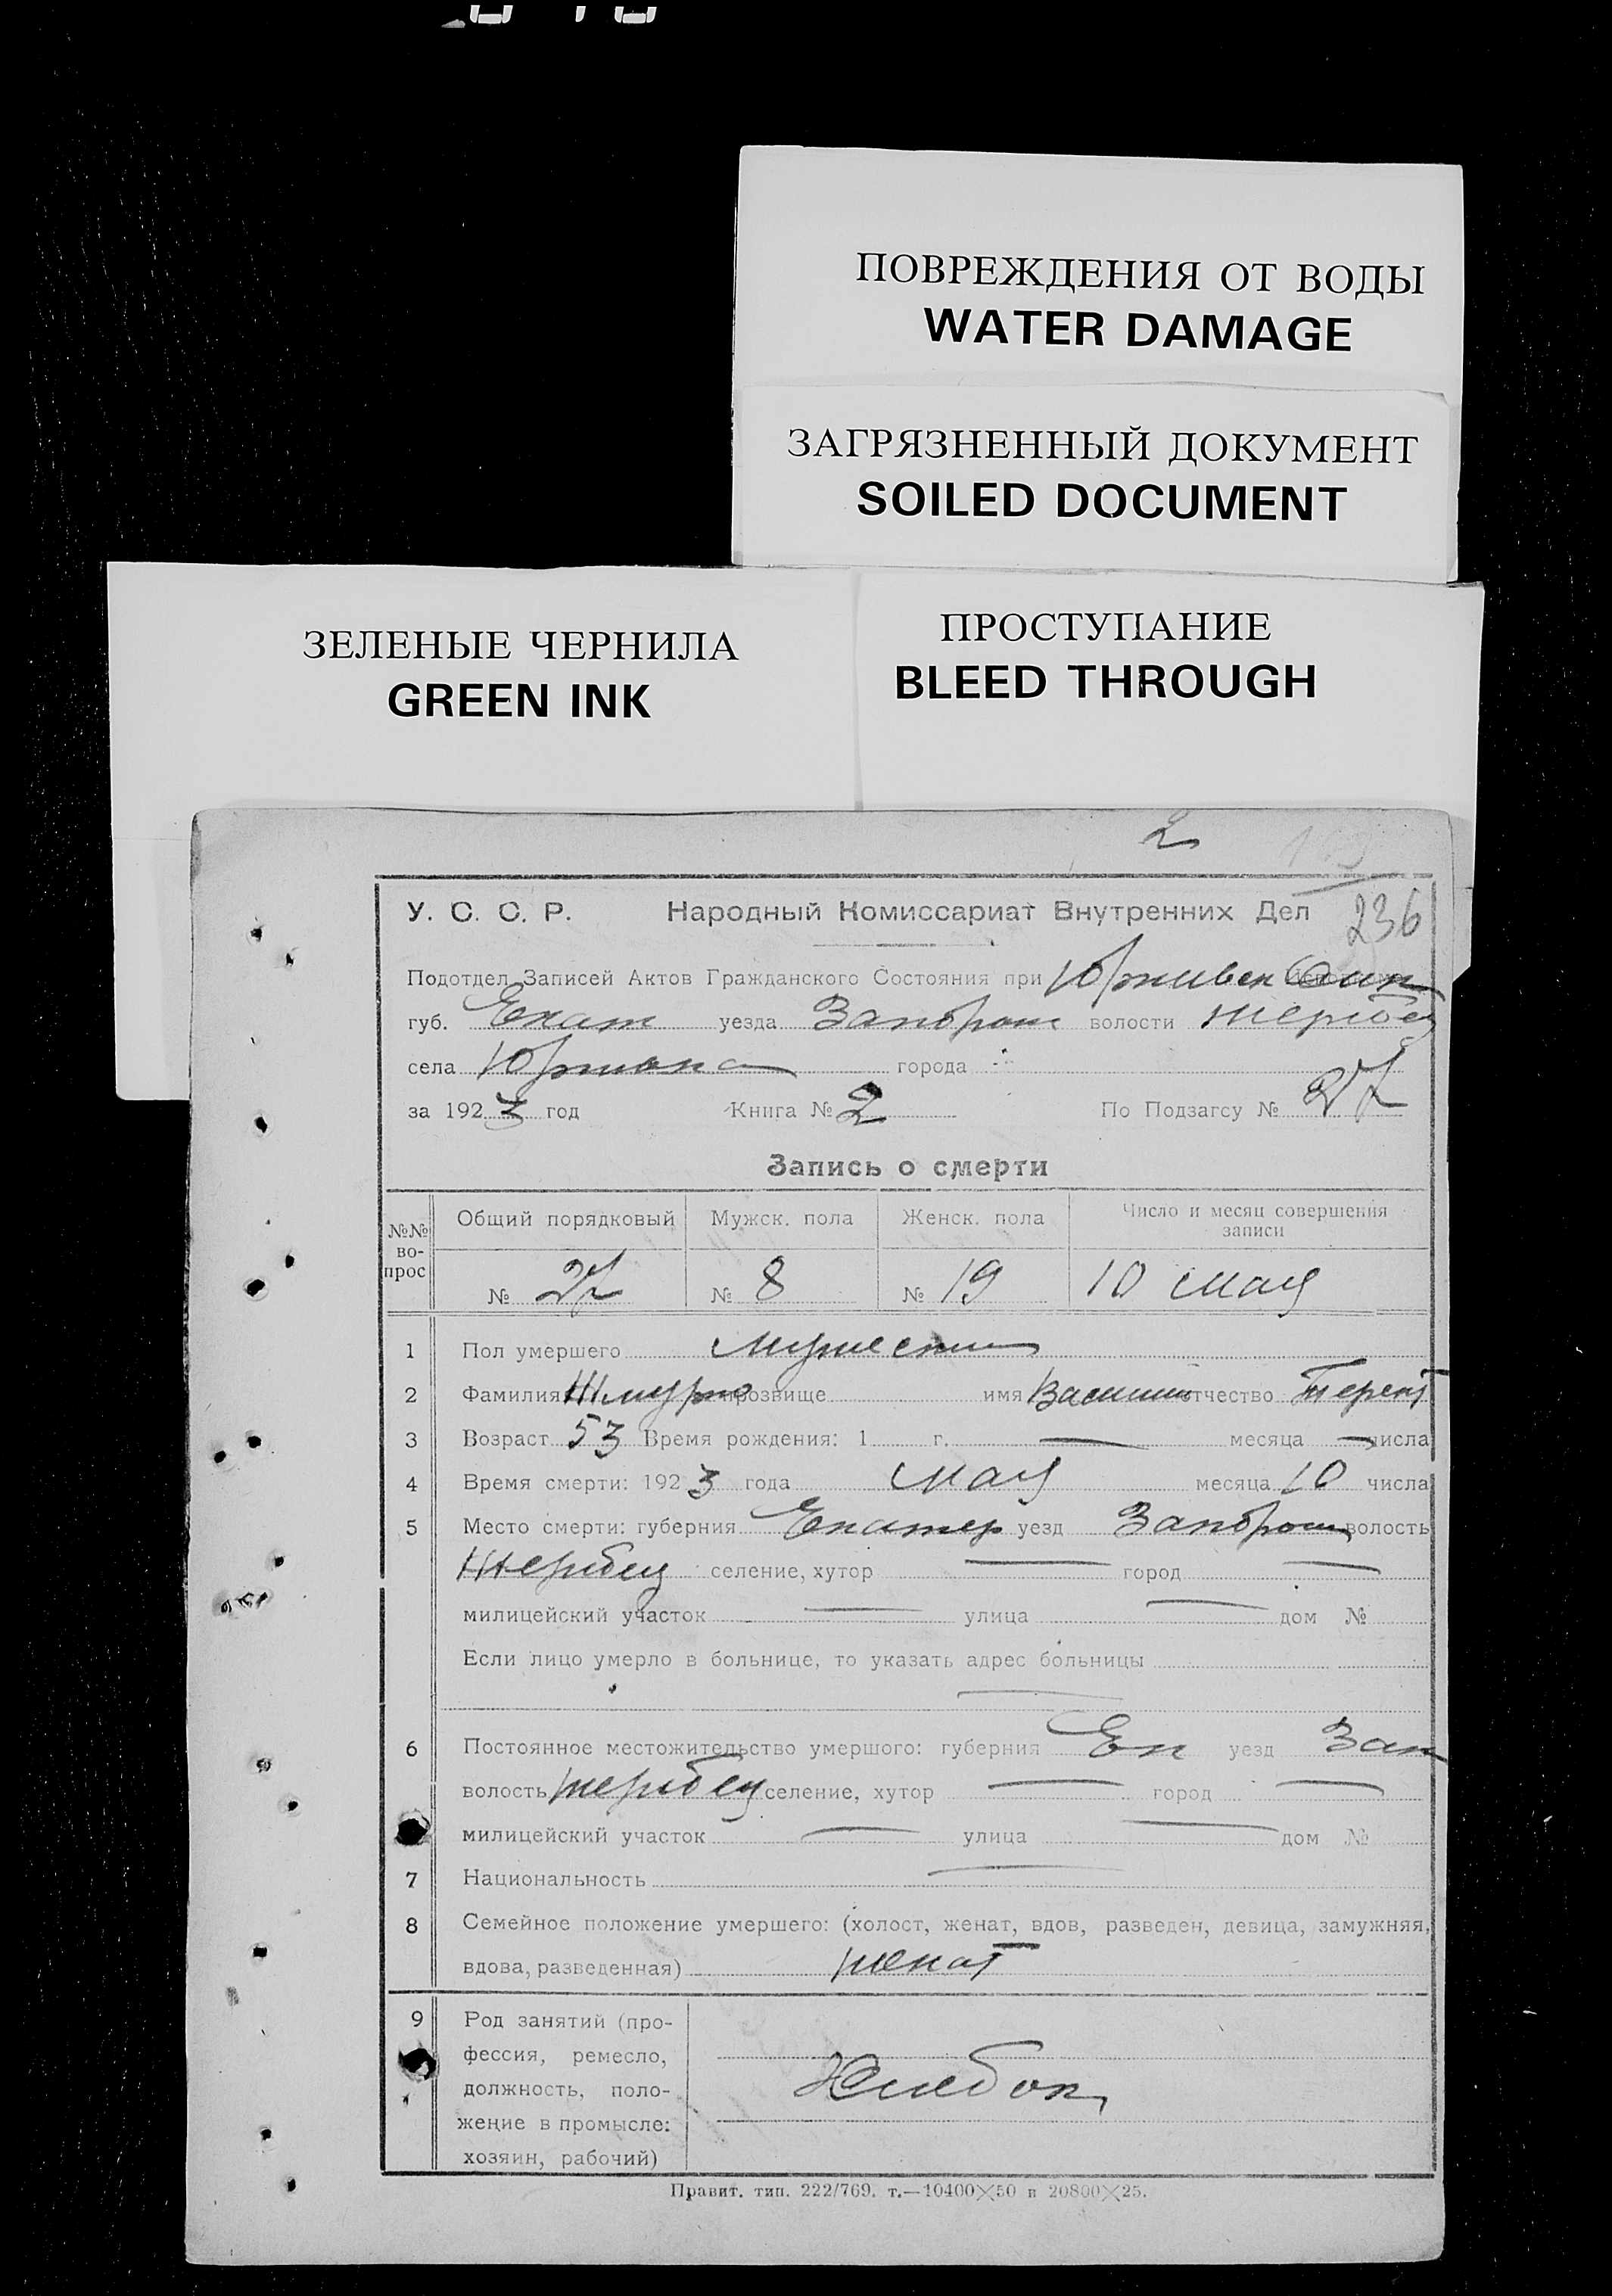 ПОВРЕЖДЕНИЯ ОТ ВОДЫ
WATER DAMAGE
ЗАГРЯЗНЕННЫЙ ДОКУМЕНТ
SOILED DOCUMENT
ЗЕЛЕНЫЕ ЧЕРНИЛА
GREEN INK
ПРОСТУПАНИЕ
BLEED THROUGH
2
У. С. С. Р. Народный Комиссариат Внутренних Дел 236
Подотдел Записей Актов Гражданского Состояния при
губ. Екат уезда Запорож волости Жеребец
села города
за 1923 год Книга № 2 По Подзагсу № 27
Запись о смерти
№№ во-прос Общий порядковый Мужск. пола Женск. пола Число и месяц совершения записи
№ 27 № 8 № 19 10 мая
1 Пол умершего мужеский
2 Фамилия Шмурно прозвище имя Василий отчество Терент
3 Возраст 53 Время рождения: 1 г. — месяца — числа
4 Время смерти: 1923 года мая месяца 10 числа
5 Место смерти: губерния Екатер уезд Запорож волость
Жеребец селение, хутор — город —
милицейский участок — улица — дом №
Если лицо умерло в больнице, то указать адрес больницы
—
6 Постоянное местожительство умершего: губерния Ек уезд Зап
волость Жеребец селение, хутор — город —
милицейский участок — улица — дом №
7 Национальность —
8 Семейное положение умершего: (холост, женат, вдов, разведен, девица, замужняя,
вдова, разведенная) женат
9 Род занятий (про-
фессия, ремесло,
должность, поло- Хлебоп
жение в промысле:
хозяин, рабочий)
Правит. тип. 222/769. т.—10400×50 и 20800×25.